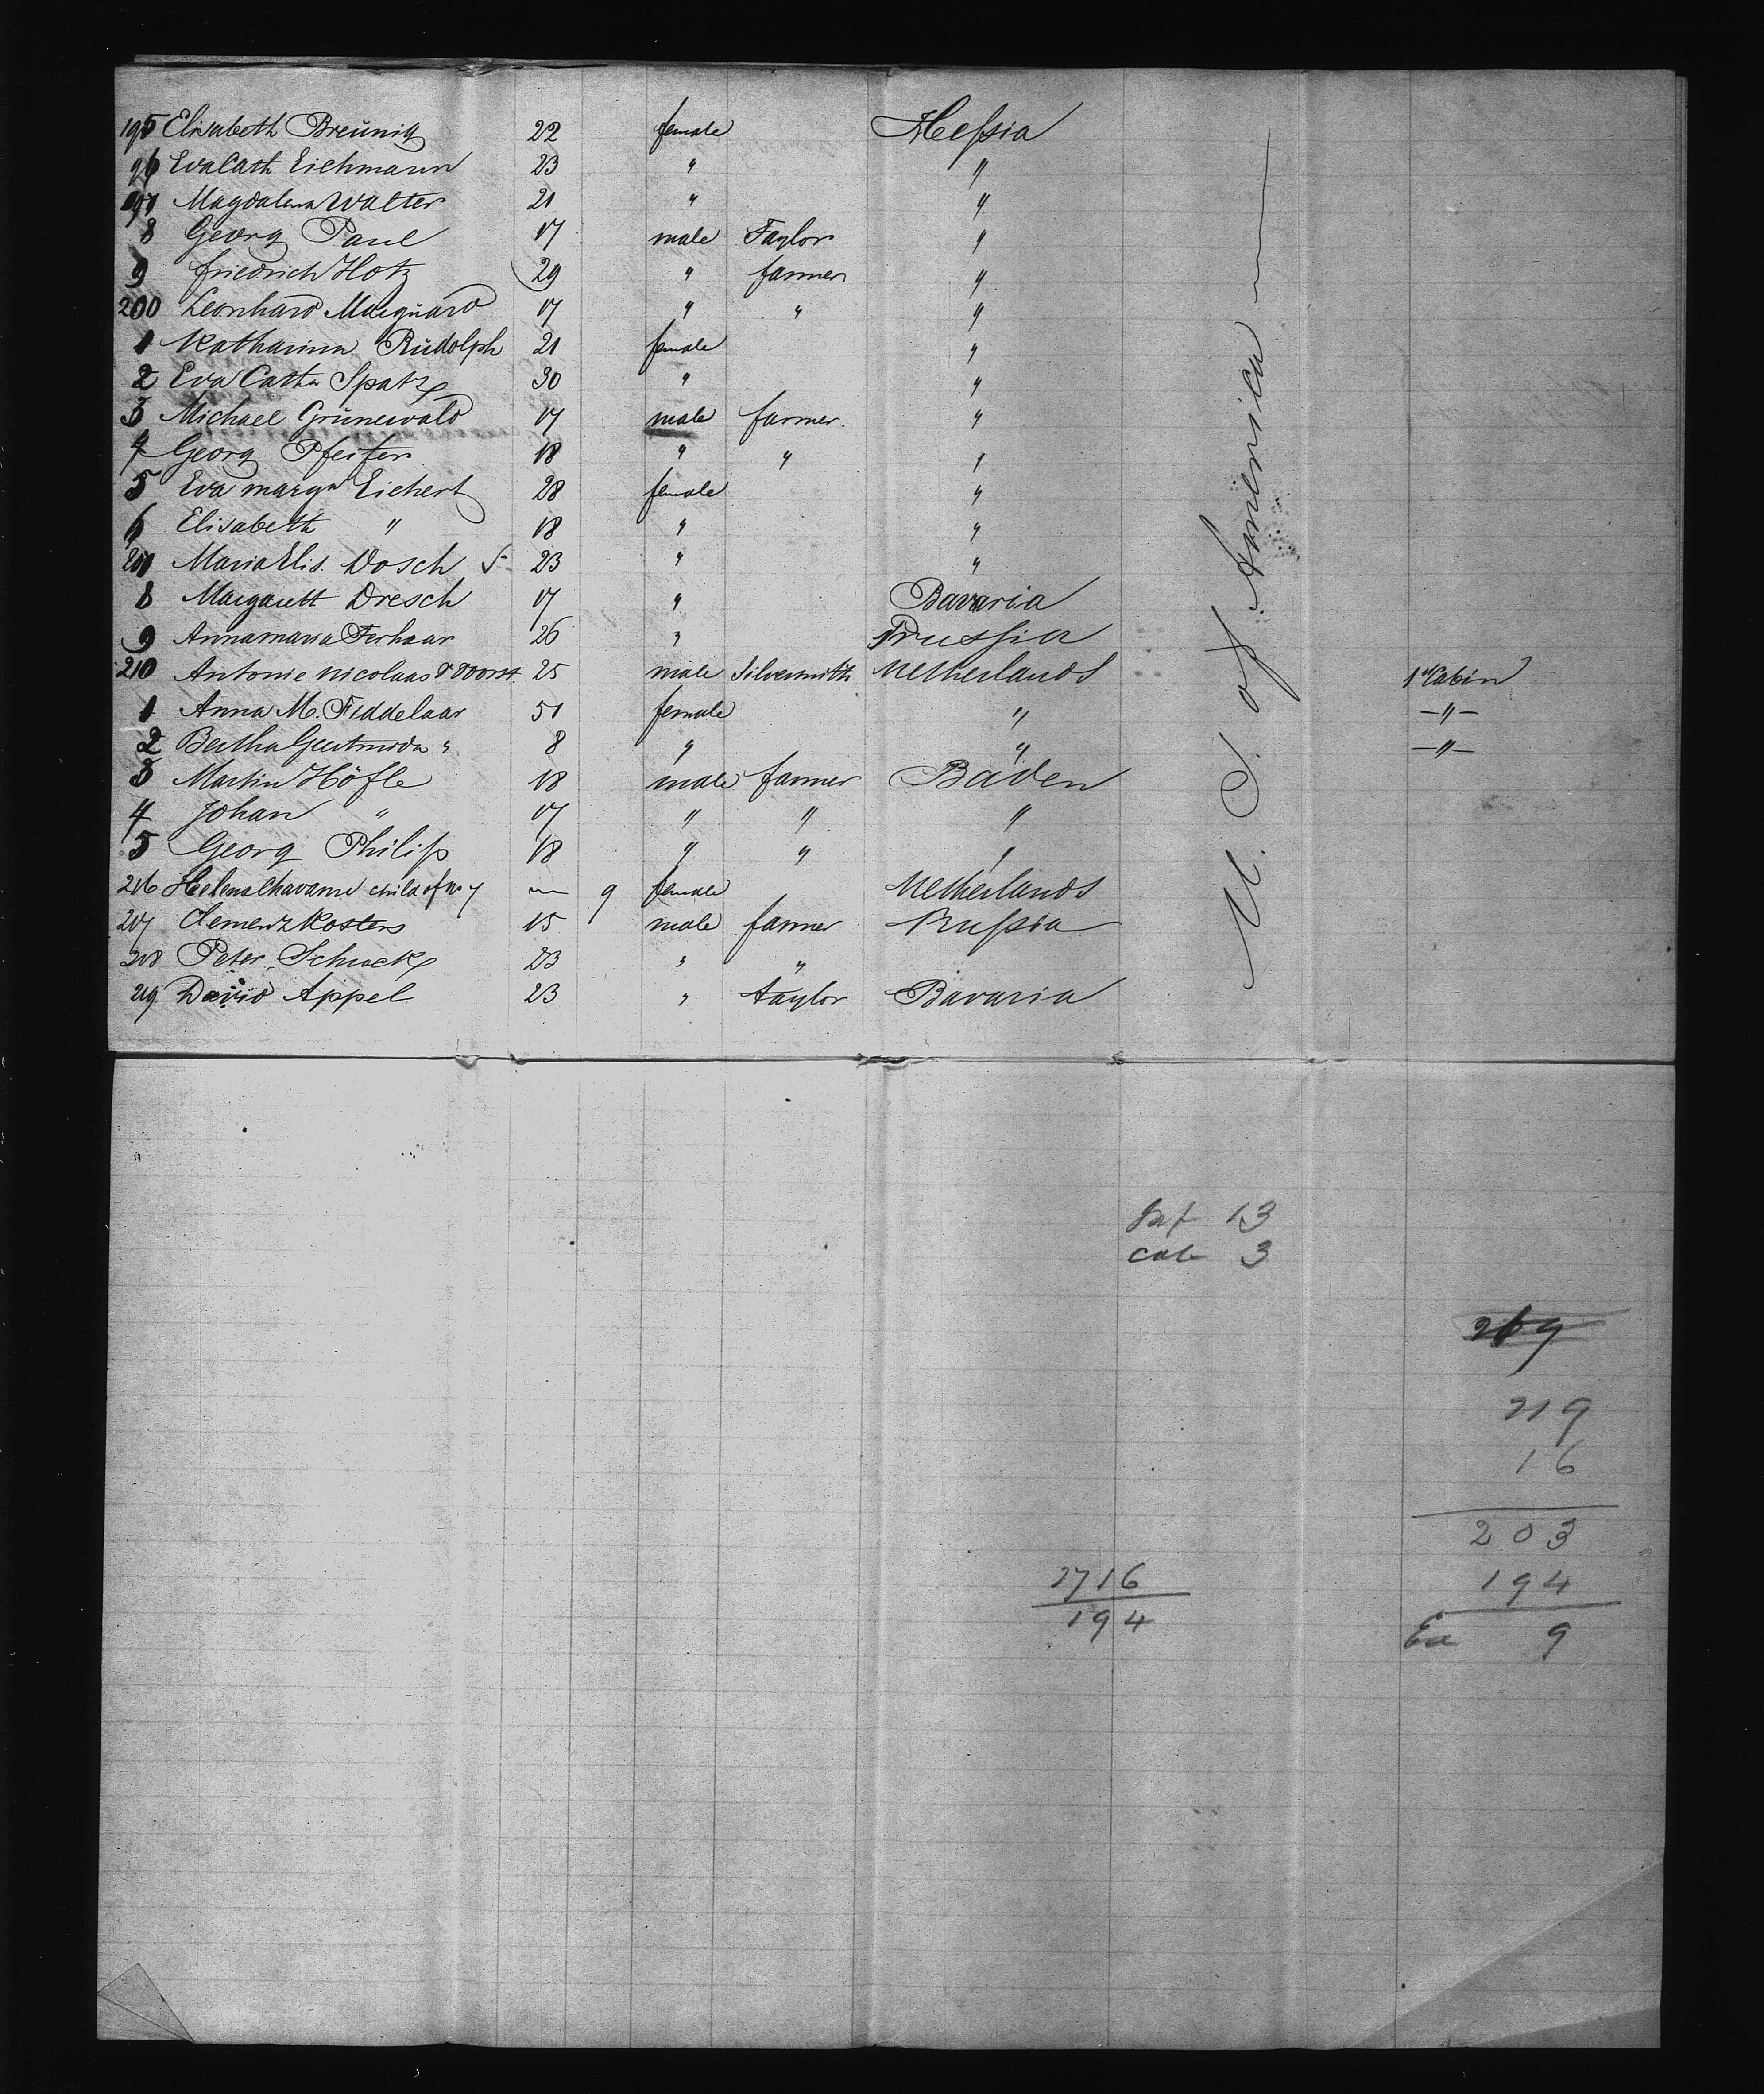 195 Elisabeth Breünig 22 female Hessia
96 Eva Cath Eichmann 23 " "
197 Magdalena Walter 21 " "
8 Georg Paul 17 male Taylor "
9 Friedrich Hotz 29 " farmer "
200 Leonhard Marquard 17 " " "
1 Katharina Rüdolph 21 female "
2 Eva Catha Spatz 30 " "
3 Michael Grünewald 17 male farmer. "
4 Georg Pfeifer 18 " " "
5 Eva marga Eichert 28 female "
6 Elisabeth " 18 " "
207 Maria Elis. Dosch 23 " "
8 Margarett Dresch 17 " Bavaria
9 Annamaria Terhaar 26 " Prussia
210 Antonie nicolaas 25 male Silversmith Netherlands 1st Cabin
1 Anna M. Fiddelaar 51 female " —"—
2 Bertha Geertruida " 8 " " —"—
3 Martin Höfle 18 male farmer Baden
4 Johan " 17 " " "
5 Georg Philip 18 " " "
216 Helena Chavanne child of No 7 — 9 female Netherlands
217 Clemenz Kosters 15 male farmer Prussia
218 Peter Schuck 23 " "
219 David Appel 23 " taylor Bavaria
U. S. of America —
Inf 13
cab 3
269
219
16
203
2716
194
194
Ex 9